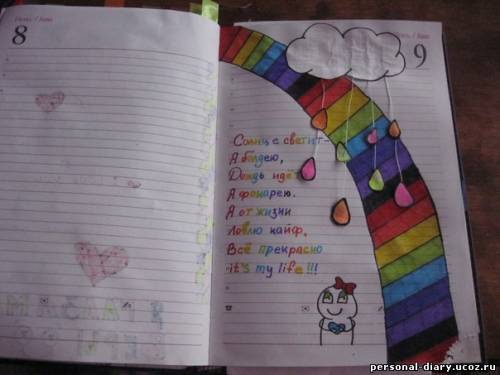 8
9
Солнце светит-
Я балдею,
Дождь идё
Я фонарею.
Я от жизни
Ловлю кайф,
Всё прекрасно
it's my life!!!
personal-diary.ucoz.ru